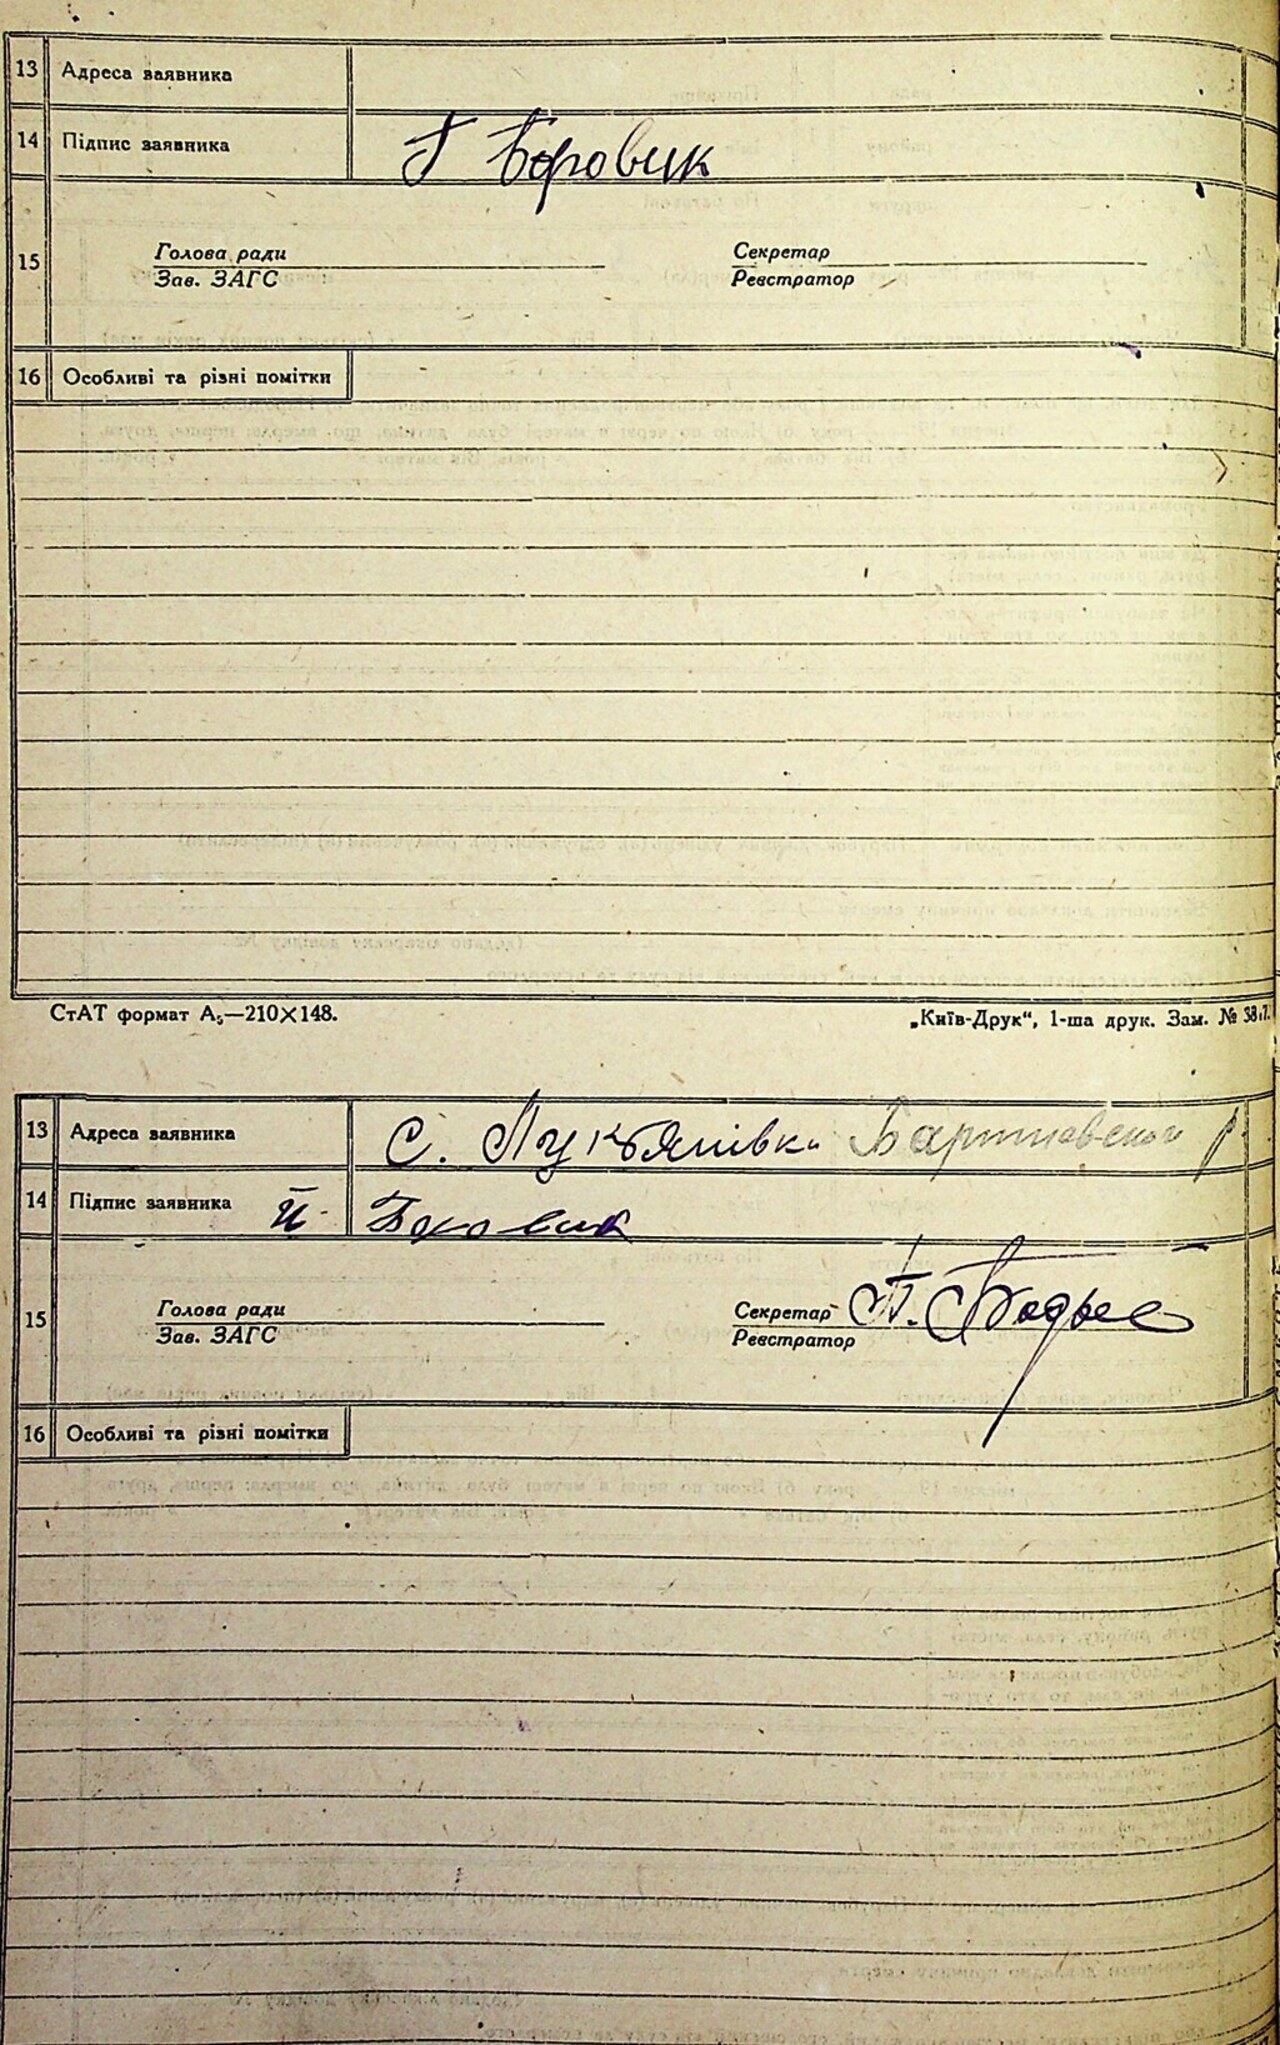 13 Адреса заявника
14 Підпис заявника Г Боровик
15
Голова ради Секретар
Зав. ЗАГС Реєстратор
16 Особливі та різні помітки
СтАТ формат А₅—210×148. „Київ-Друк“, 1-ша друк. Зам. №
13 Адреса заявника С. Лукʼянівка
14 Підпис заявника Й Боровик
15
Голова ради Секретар П.
Зав. ЗАГС Реєстратор
16 Особливі та різні помітки